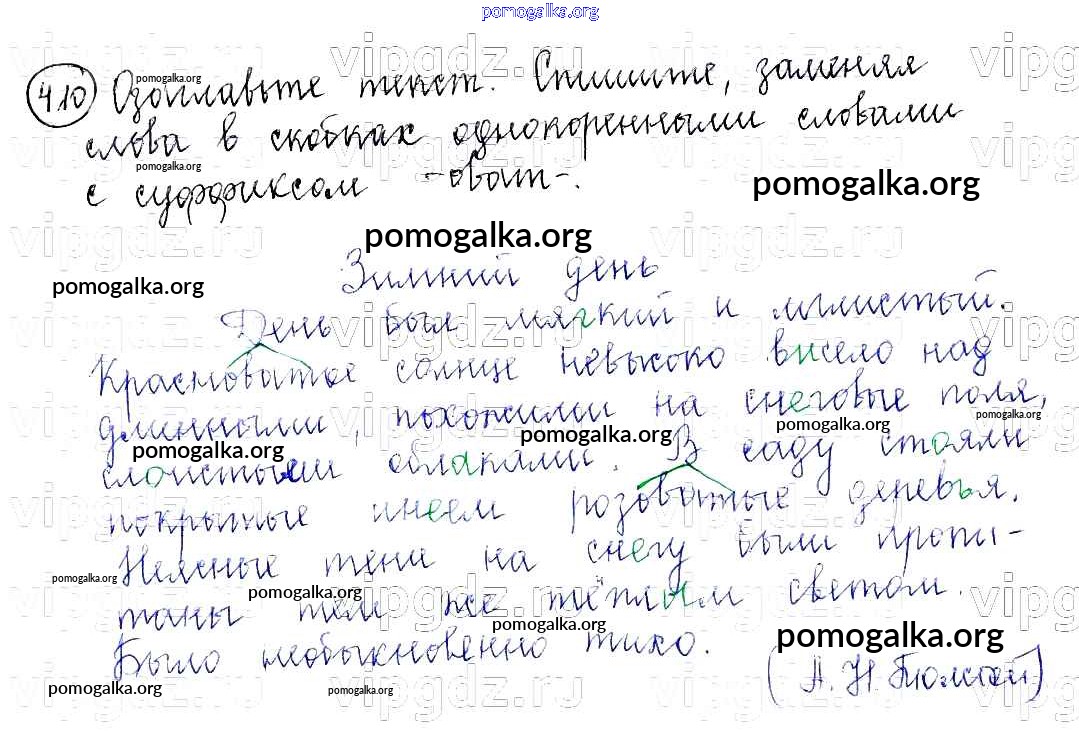 pomogalka.org
410 Озаглавьте текст. Спишите, заменяя
слова в скобках однокоренными словами
с суффиксом -оват-.
Зимний день
День был мягкий и мглистый.
Красноватое солнце невысоко висело над
длинными, похожими на снеговые поля,
слоистыми облаками. В саду стояли
покрытые инеем розоватые деревья.
Неясные тени на снегу были пропи-
таны тем же тёплым светом.
Было необыкновенно тихо.
(А. Н. Толстой)